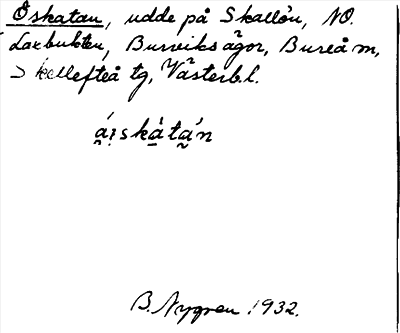 Öskatan, udde på Skallön, NO.
Laxbukten, Burviks ägor, Bureå m,
Skellefteå tg, Västerb.l.
á̤i̤skà̤ta̤´n
B. Nygren 1932.